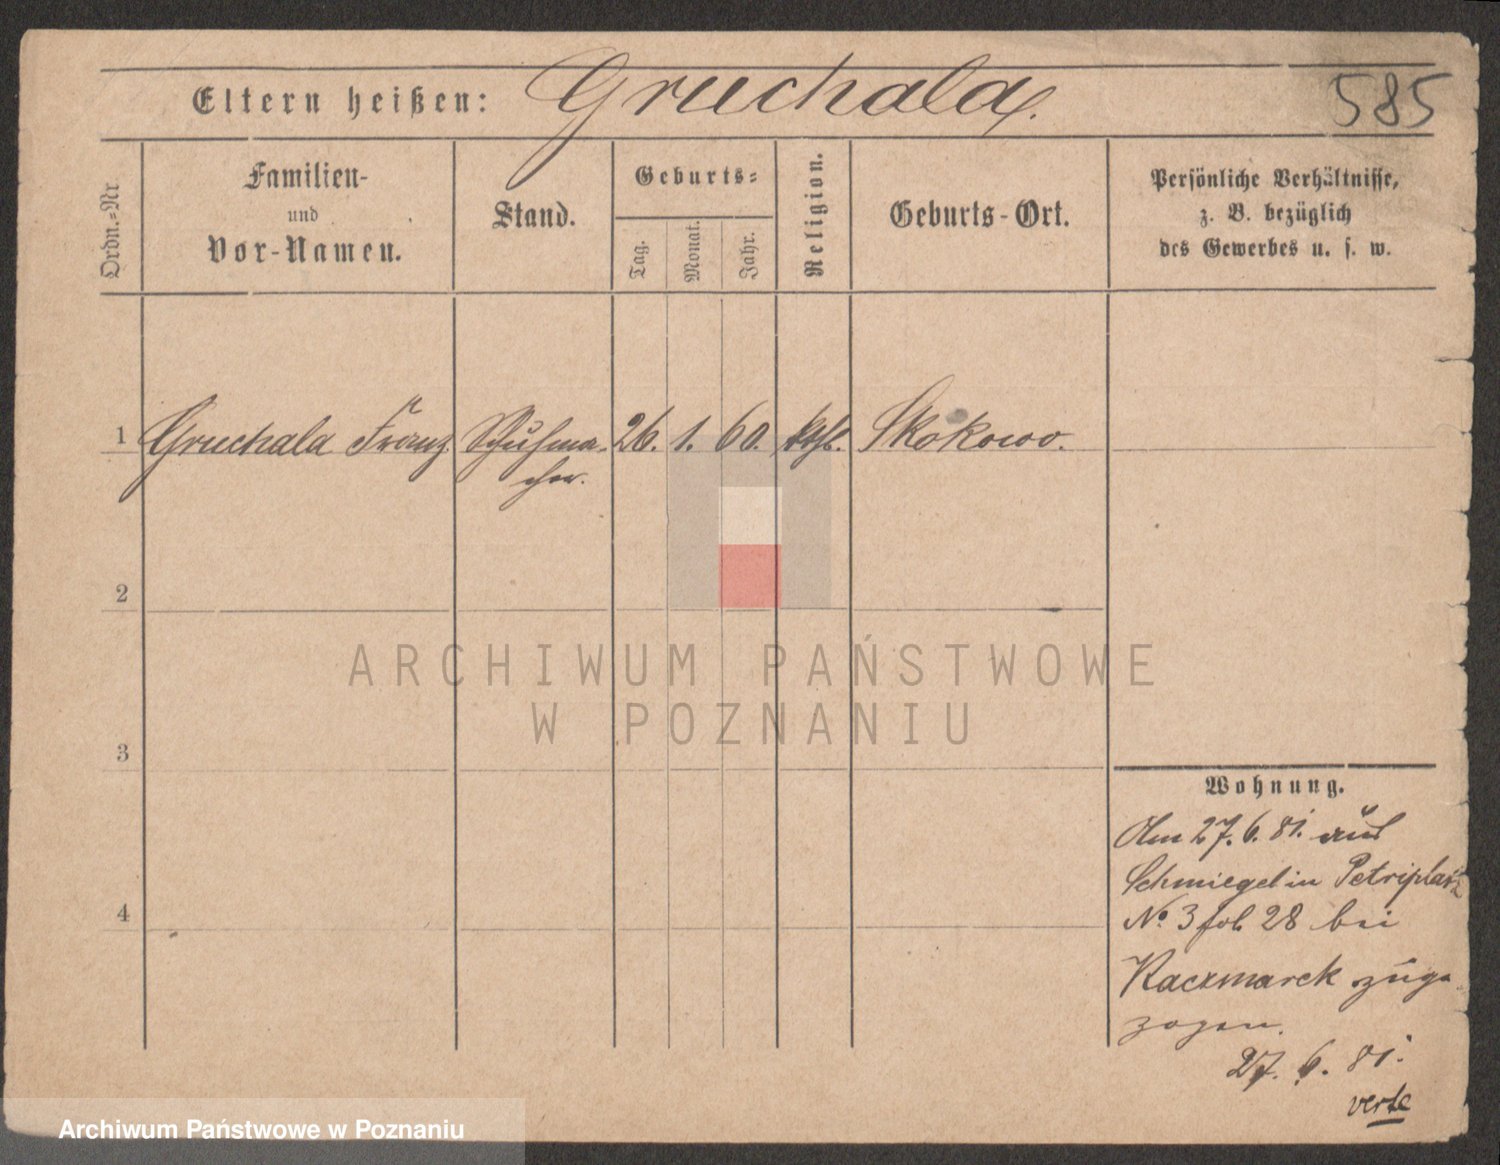 Eltern heißen: Gruchala. 585
Ordn.=Nr
Familien-
und
Vor-Namen.
Stand.
Geburts=
Tag.
Monat.
Jahr.
Religion.
Geburts-Ort.
Persönliche Verhältnisse,
z. B. bezüglich
des Gewerbes u. s. w.
1 Gruchala Franz Schuhma- 26. 1. 60. kthl. Skokowo.
cher.
2
3
4
ARCHIWUM PAŃSTWOWE
W POZNANIU
Wohnung.
Am 27. 6. 81. aus
Schmiegel in Petriplatz
No. 3 fol. 28 bei
Kaczmarek zuge-
zogen.
27. 6. 81.
verte
Archiwum Państwowe w Poznaniu